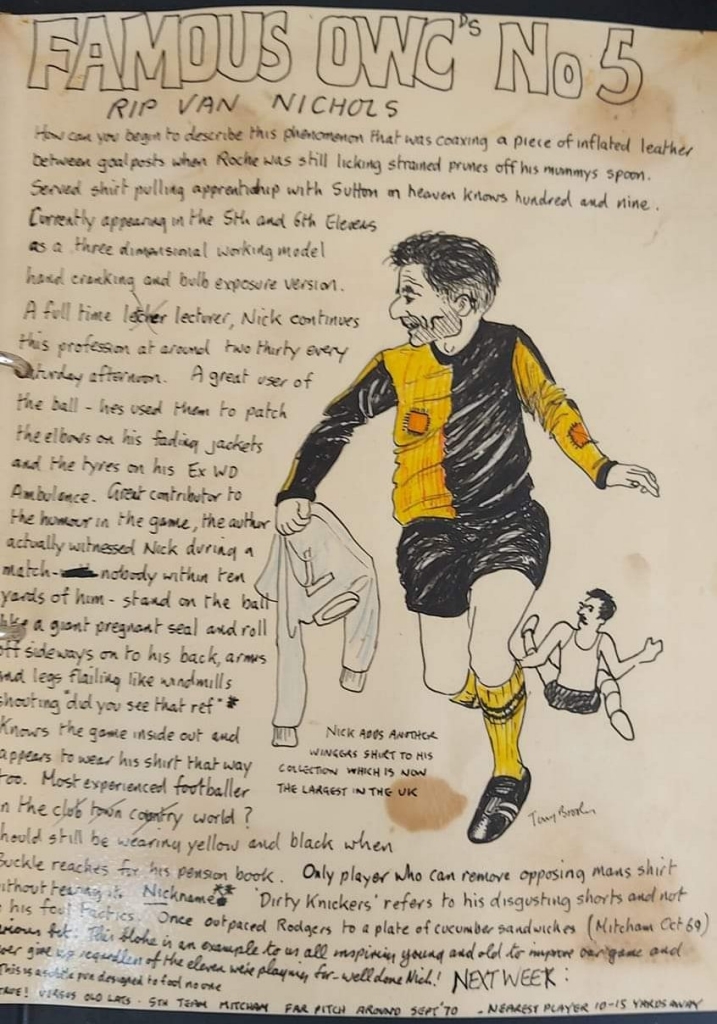 FAMOUS OWC'DS No 5
RIP VAN NICHOLS
How can you begin to describe this phenomenon that was coaxing a piece of inflated leather
between goalposts when Roche was still licking strained prunes off his mummys spoon.
Served shirt pulling apprentiship with Sutton in heaven knows hundred and nine.
Currently appearing in the 5th and 6th Elevens
as a three dimensional working model
hand cranking and bulb exposure version.
A full time lecher lecturer, Nick continues
this profession at around two thirty every
Saturday afternoon. A great user of
the ball - hes used them to patch
the elbows on his fading jackets
and the tyres on his Ex WD
Ambulance. Great contributor to
the humour in the game, the author
actually witnessed Nick during a
match - nobody within ten
yards of him - stand on the ball
like a giant pregnant seal and roll
off sideways on to his back, arms
and legs flailing like windmills
shouting "did you see that ref" *
Knows the game inside out and
appears to wear his shirt that way
too. Most experienced footballer
in the club town country world ?
Should still be wearing yellow and black when
Buckle reaches for his pension book. Only player who can remove opposing mans shirt
without tearing it. Nickname ** 'Dirty Knickers' refers to his disgusting shorts and not
his foul tactics. Once outpaced Rodgers to a plate of cucumber sandwiches (Mitcham Oct 69)
bit: This bloke is an example to us all inspiring young and old to improve our game and
never give up regardless of the eleven we're playing for - well done Nich! NEXT WEEK :
This is a subtle pun designed to fool no one
TRUE! VERSUS OLD LATS - 5TH TEAM MITCHAM FAR PITCH AROUND SEPT '70 - NEAREST PLAYER 10-15 YARDS AWAY
NICK ADDS ANOTHER
WINGERS SHIRT TO HIS
COLLECTION WHICH IS NOW
THE LARGEST IN THE UK
Tony